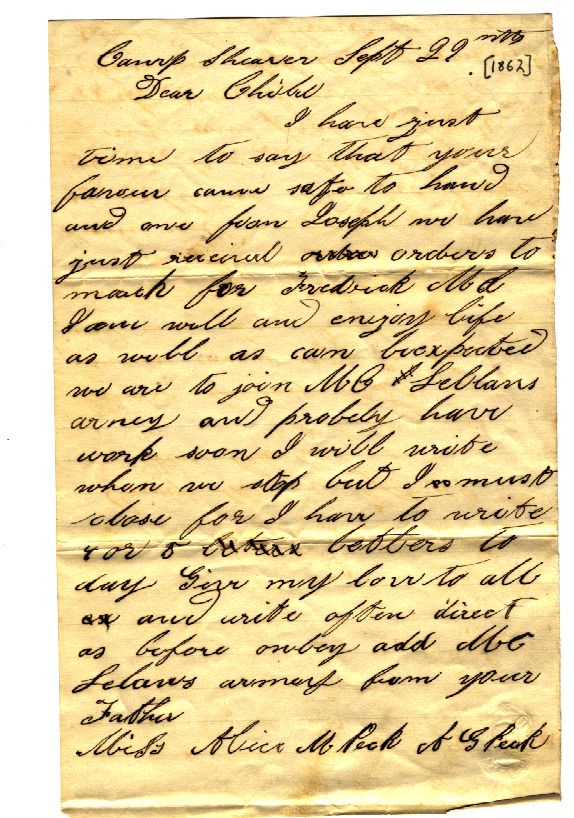 Camp Shearer Sept 29nth
[1862]
Dear Childe
I have just
time to say that your
favour came safe to hand
and one from Joseph we have
just recieved orders to
march for Fredrick Md
I am well and enjoy life
as well as can beexpected
we are to join MC Lellans
armey and probely have
work soon I will write
when we stop but I must
close for I have to write
or 8 letters to
day Give my love to all
and write often direct
as before onley add MC
Lelaws armey from your
Father
Miss Alice M Peck A G Peck